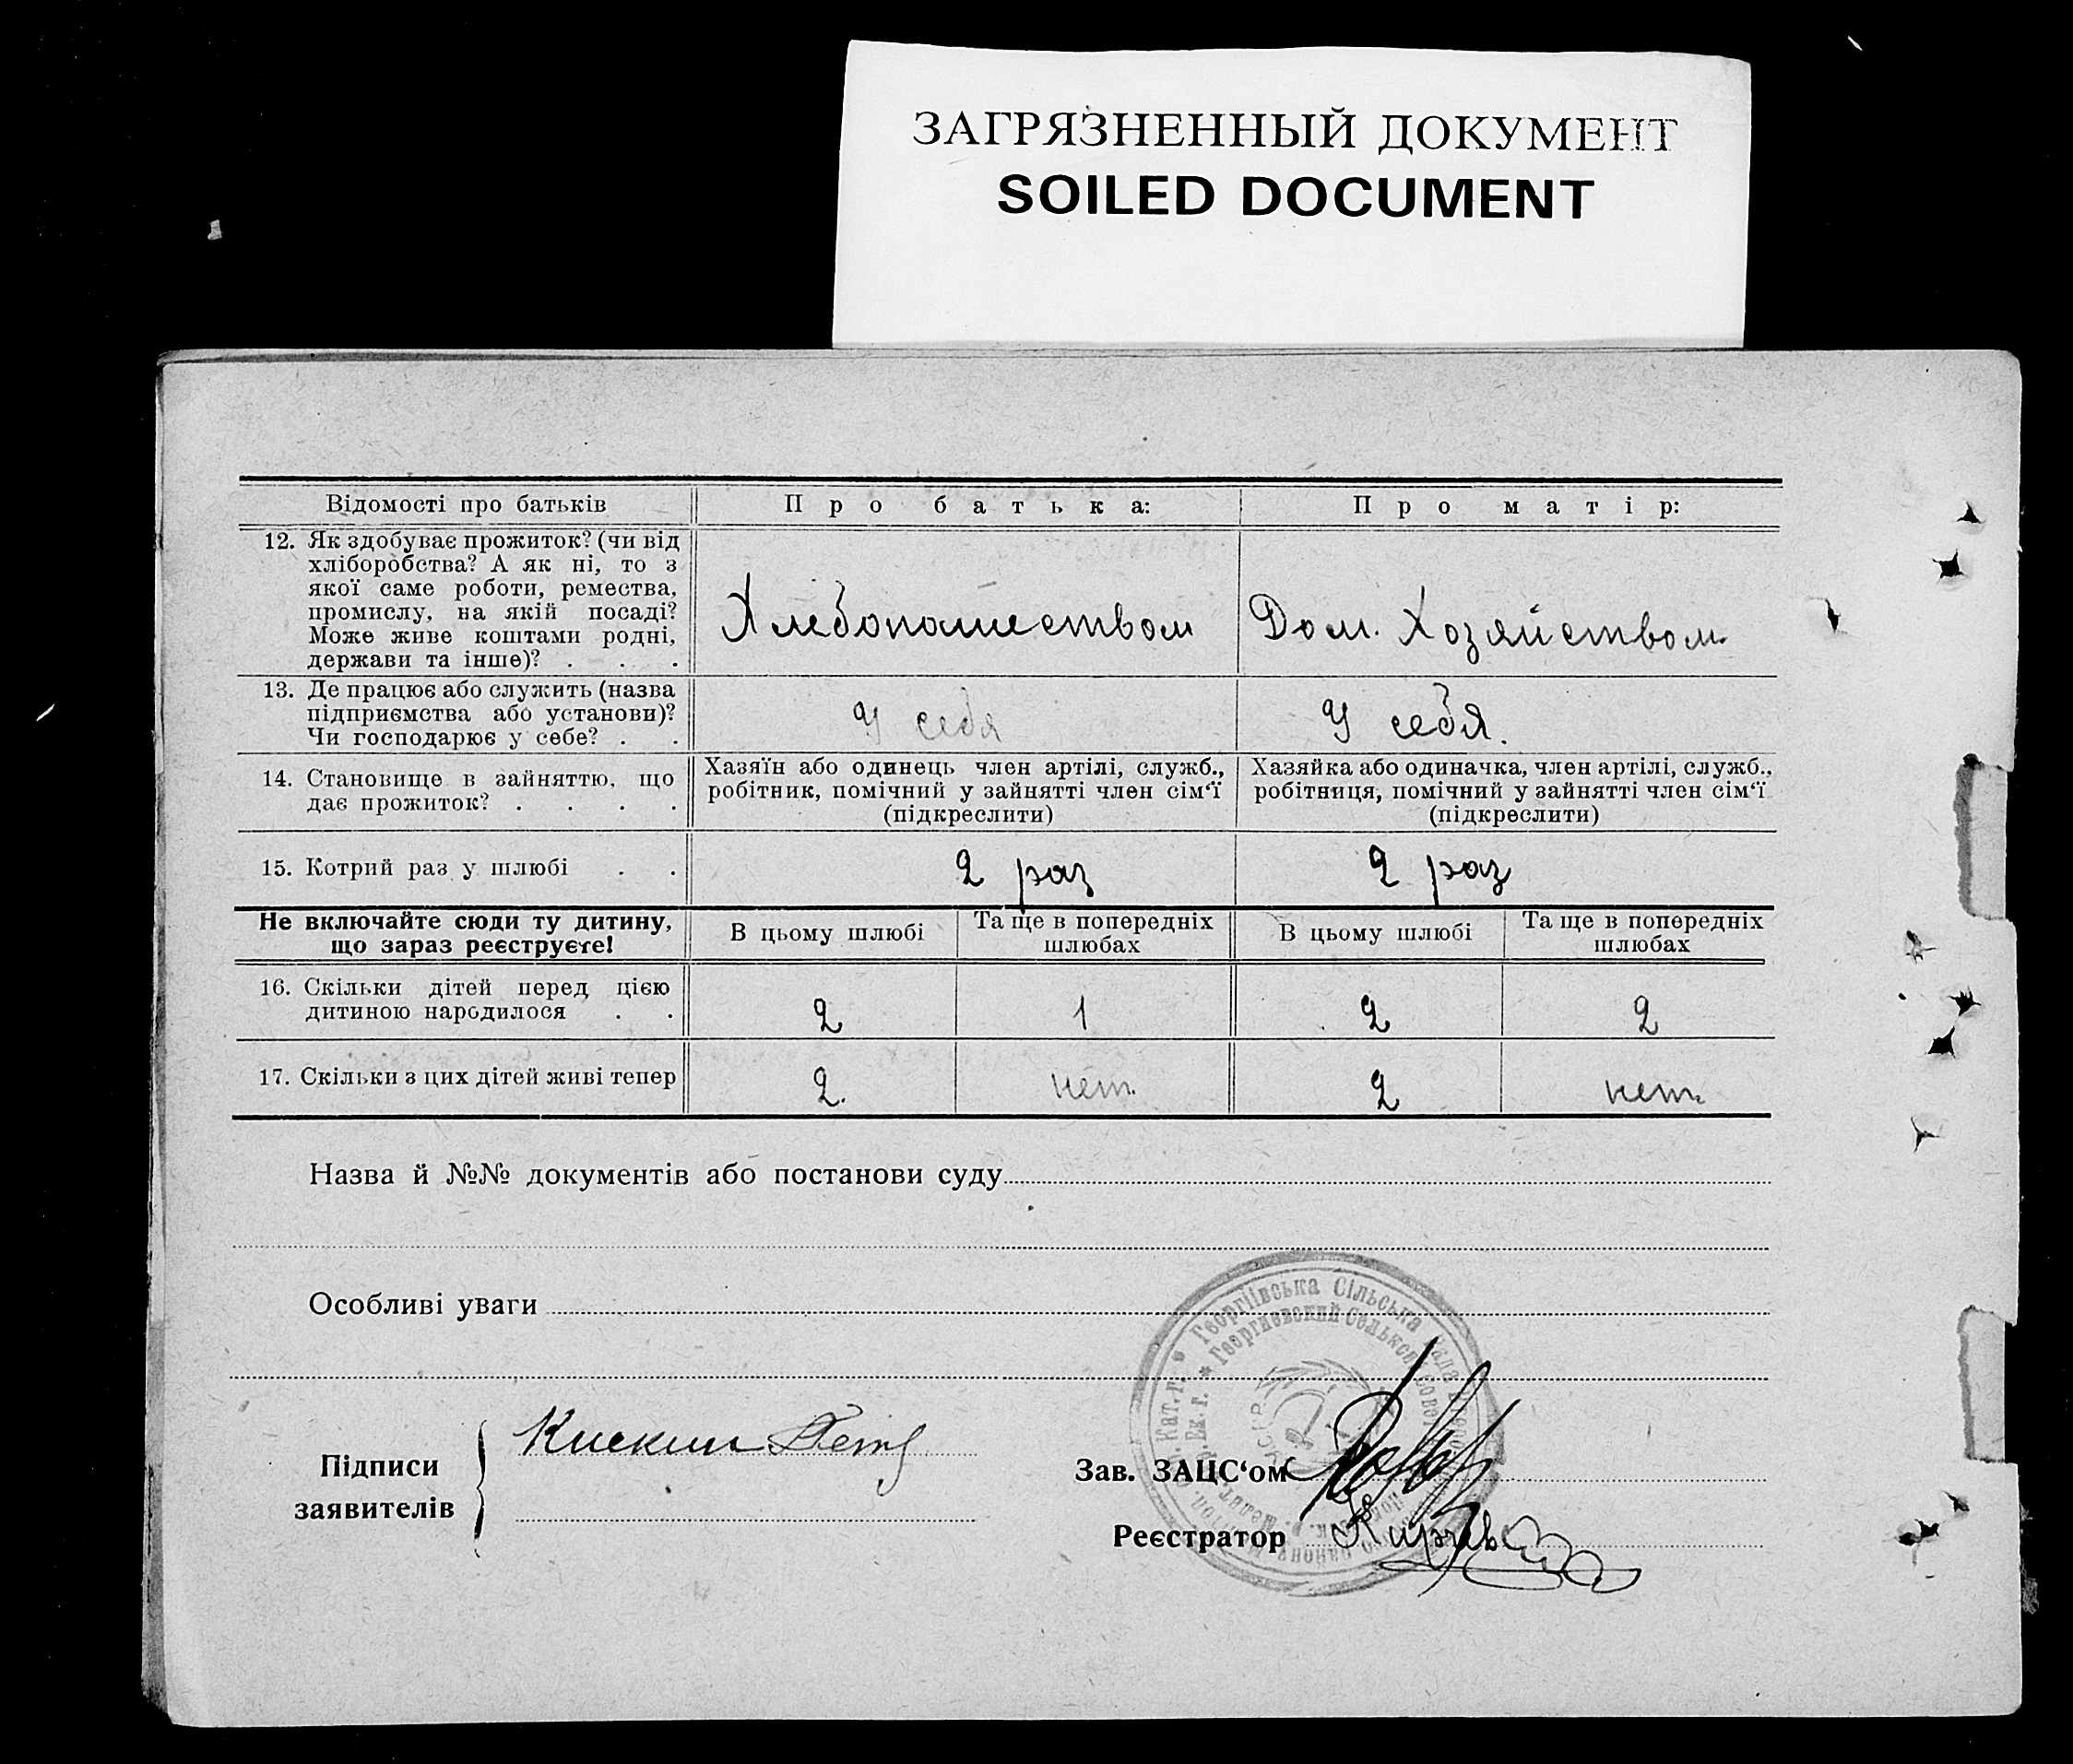 ЗАГРЯЗНЕННЫЙ ДОКУМЕНТ
SOILED DOCUMENT
Відомості про батьків
Про батька:
Про матір:
12. Як здобуває прожиток? (чи від
хліборобства? А як ні, то з
якої саме роботи, ремества,
промислу, на якій посаді?
Може живе коштами родні,
держави та інше)? . . .
Хлебопашеством
Дом. Хозяйством
13. Де працює або служить (назва
підприємства або установи)?
Чи господарює у себе? . .
У себя
У себя.
14. Становище в зайняттю, що
дає прожиток? . . . .
Хазяїн або одинець член артілі, служб.,
робітник, помічний у зайнятті член сім‘ї
(підкреслити)
Хазяйка або одиначка, член артілі, служб.,
робітниця, помічний у зайнятті член сім‘ї
(підкреслити)
15. Котрий раз у шлюбі . .
2 раз
2 раз
Не включайте сюди ту дитину,
що зараз реєструєте!
В цьому шлюбі
Та ще в попередніх
шлюбах
В цьому шлюбі
Та ще в попередніх
шлюбах
16. Скільки дітей перед цією
дитиною народилося . .
2
1
2
2
17. Скільки з цих дітей живі тепер
2.
нет.
2
нет
Назва й №№ документів або постанови суду
Особливі уваги
Георгіївська Сільська Рада
Георгиевский Сельск. Совет
УСРР
Підписи
заявителів
Кискин Петр
Зав. ЗАЦС‘ом
Реєстратор